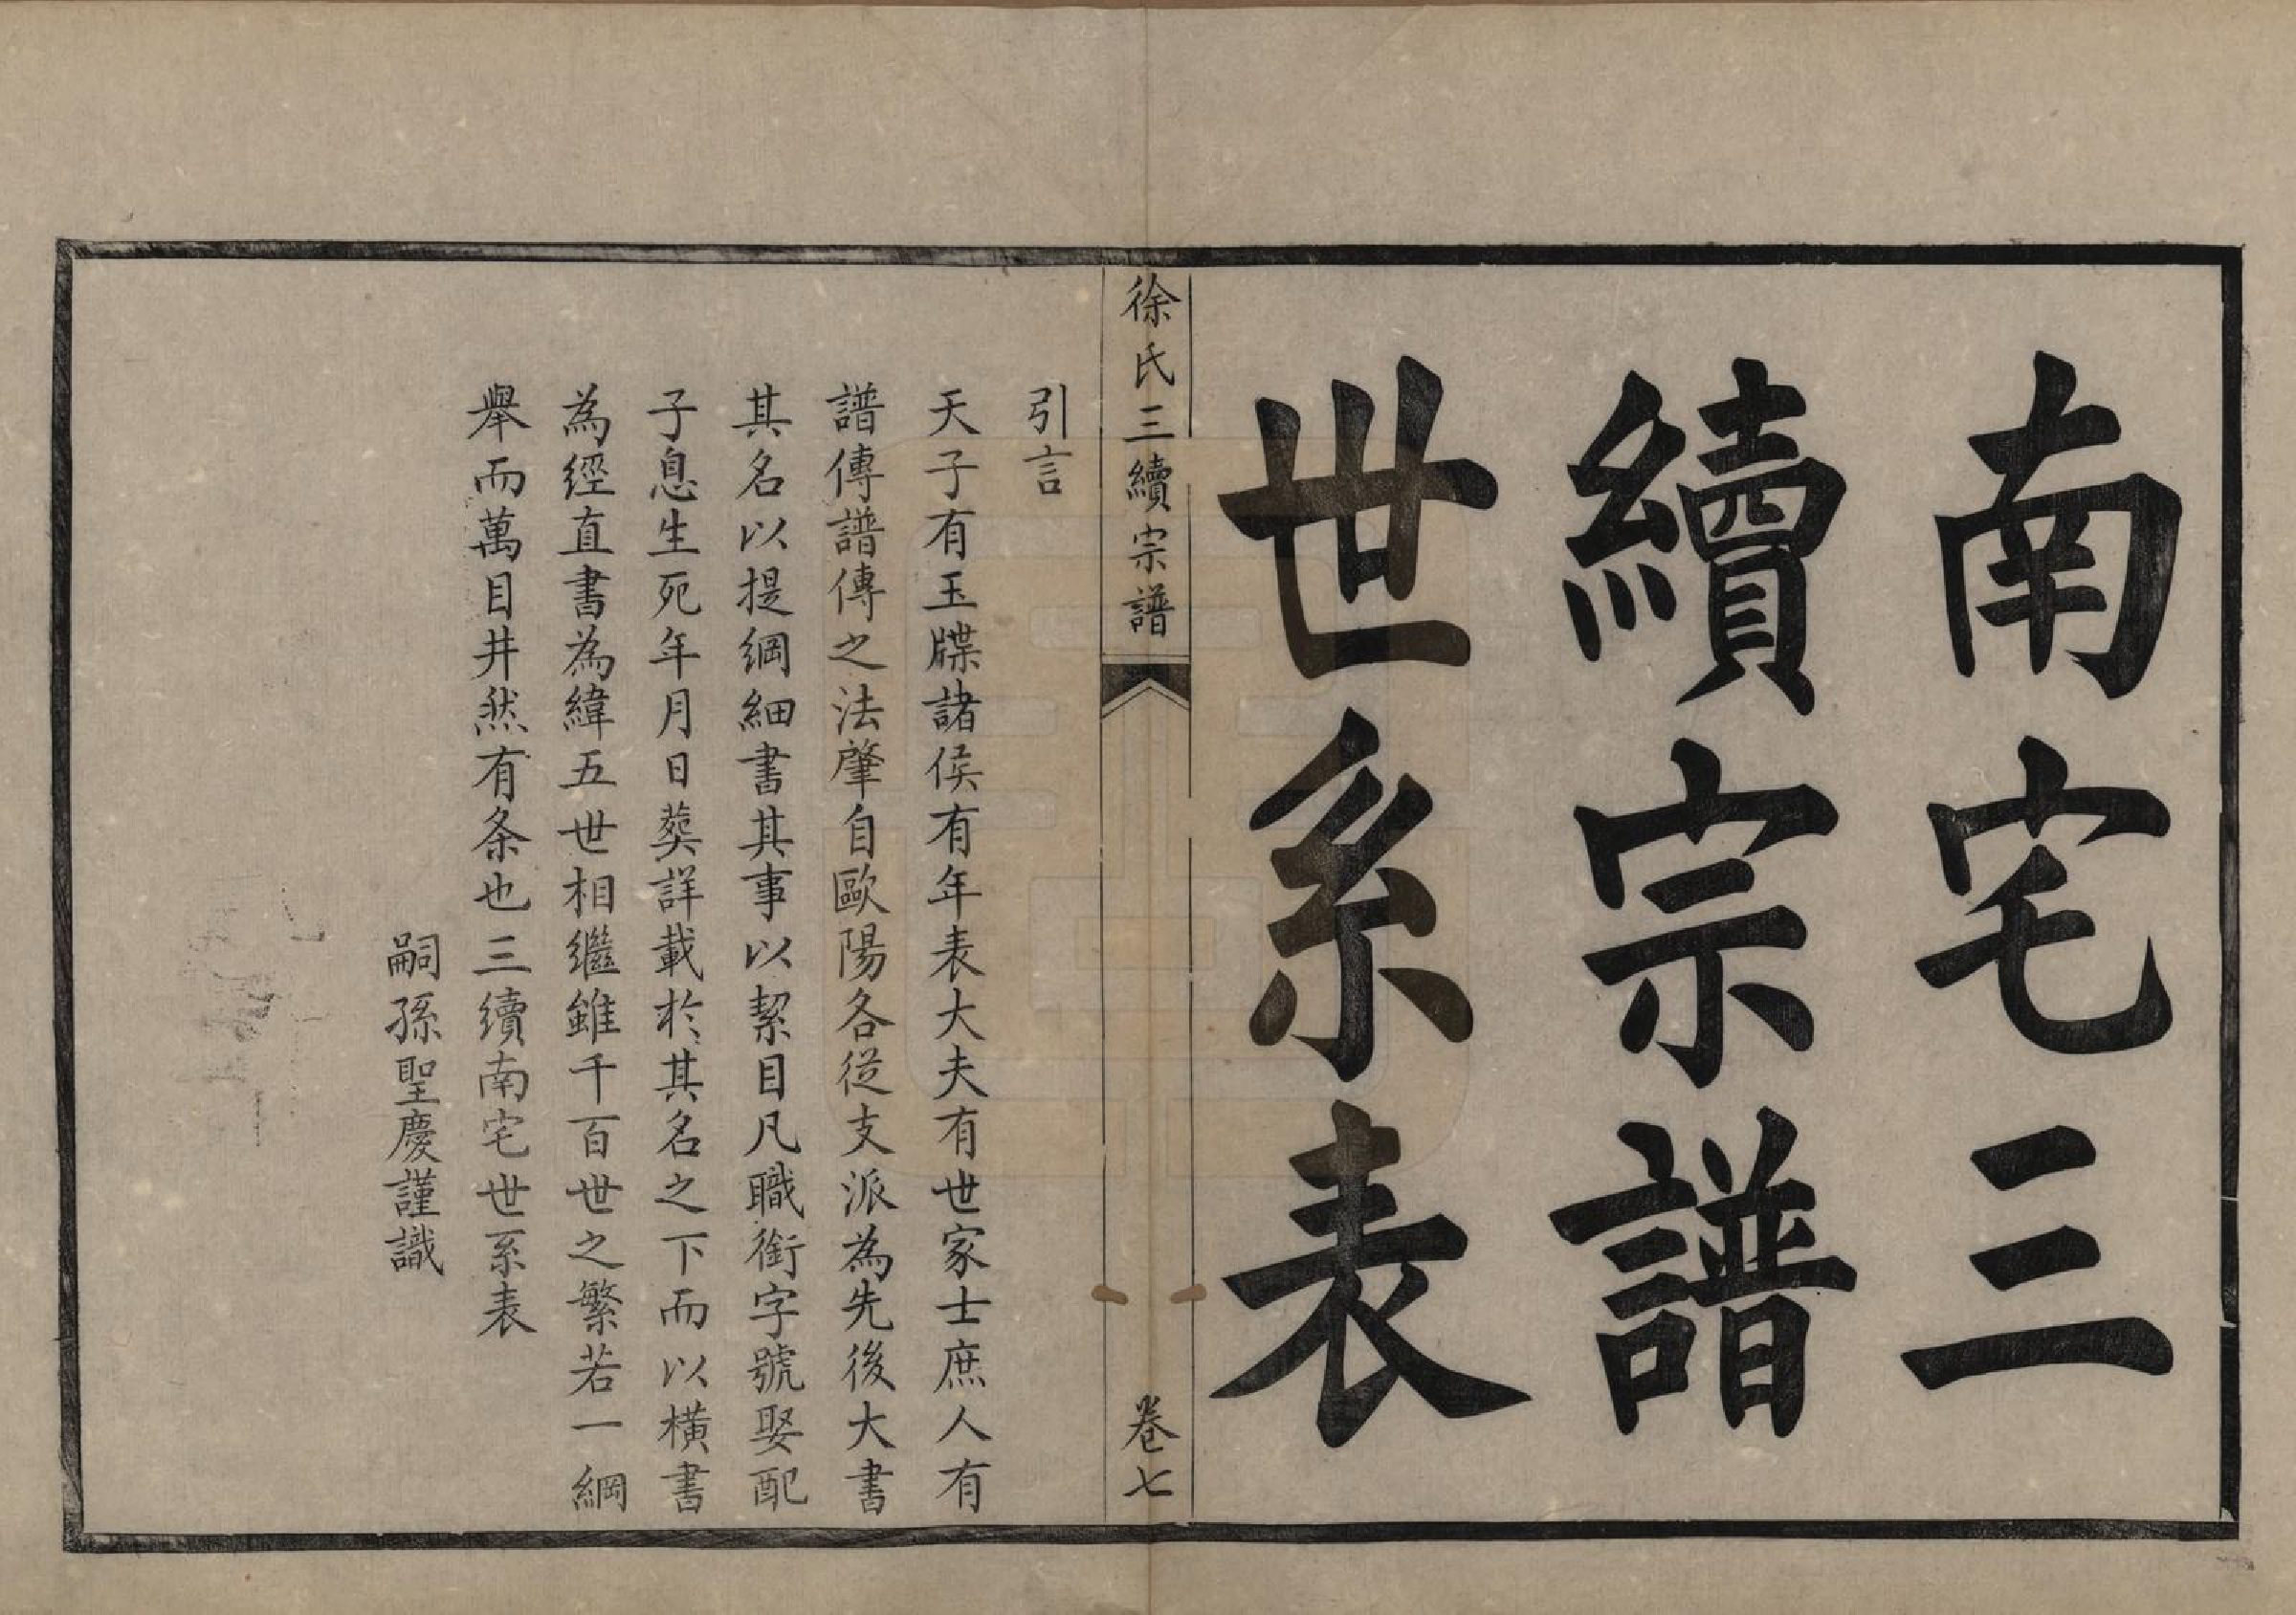 南宅三
續宗譜
世系表
徐氏三續宗譜
卷七
引言
天子有玉牒諸侯有年表大夫有世家士庶人有
譜傳譜傳之法肇自歐陽各從支派為先後大書
其名以提綱細書其事以絜目凡職銜字號娶配
子息生死年月日葬詳載於其名之下而以橫書
為經直書為緯五世相繼雖千百世之繁若一綱
舉而萬目井然有条也三續南宅世系表
嗣孫聖慶謹識